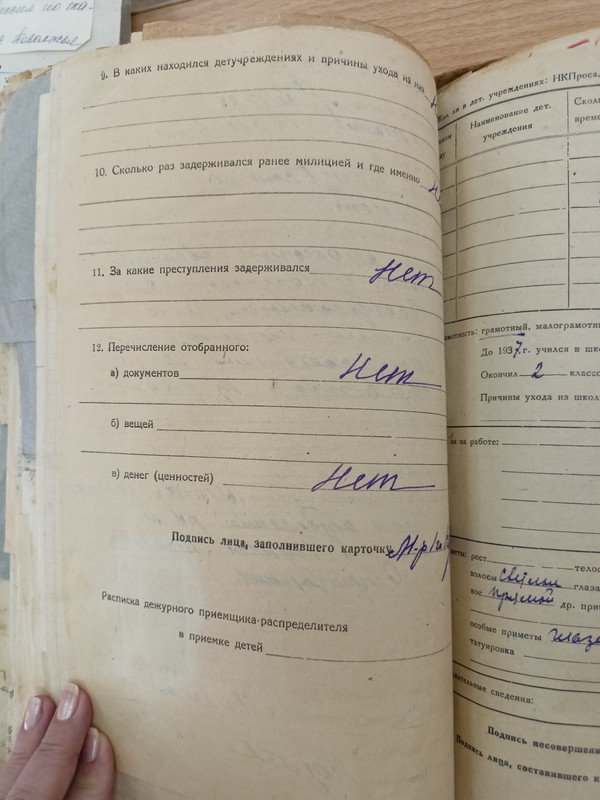 9. В каких находился детучреждениях и причины ухода из них
10. Сколько раз задерживался ранее милицией и где именно
11. За какие преступления задерживался Нет
12. Перечисление отобранного:
а) документов Нет
б) вещей
в) денег (ценностей) Нет
Подпись лица, заполнившего карточку
Расписка дежурного приемщика-распределителя
в приемке детей
ли в дет. учреждениях: НКПроса,
Наименование дет.
учреждения
грамотный, малограмотн
До 1937 г. учился в шк
Окончил 2 классо
Причины ухода из школ
на работе:
рост
волосы светлы глаза
прямой др. при
особые приметы глаза
татуировка
сведения:
Подпись несовершен
Подпись лица, составившего к